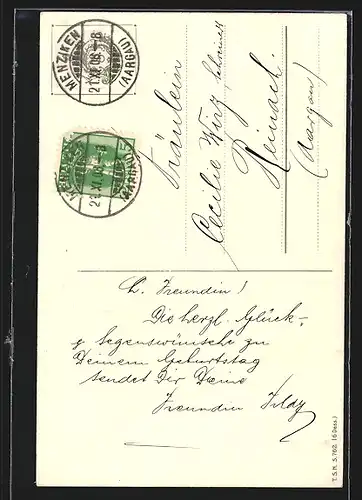 MENZIKEN
21.XI.08.-8
(AARGAU)
MENZIKEN
21.XI.08.-8
(AARGAU)
Fräulein
Cecilie Wirz,
Reinach
(Aargau)
L. Freundin!
Die herzl. Glück-
& Segenswünsche zu
Deinem Geburtstag
sendet Dir Deine
Freundin Hildy
T.S.N. S/762 (6 Dess.)